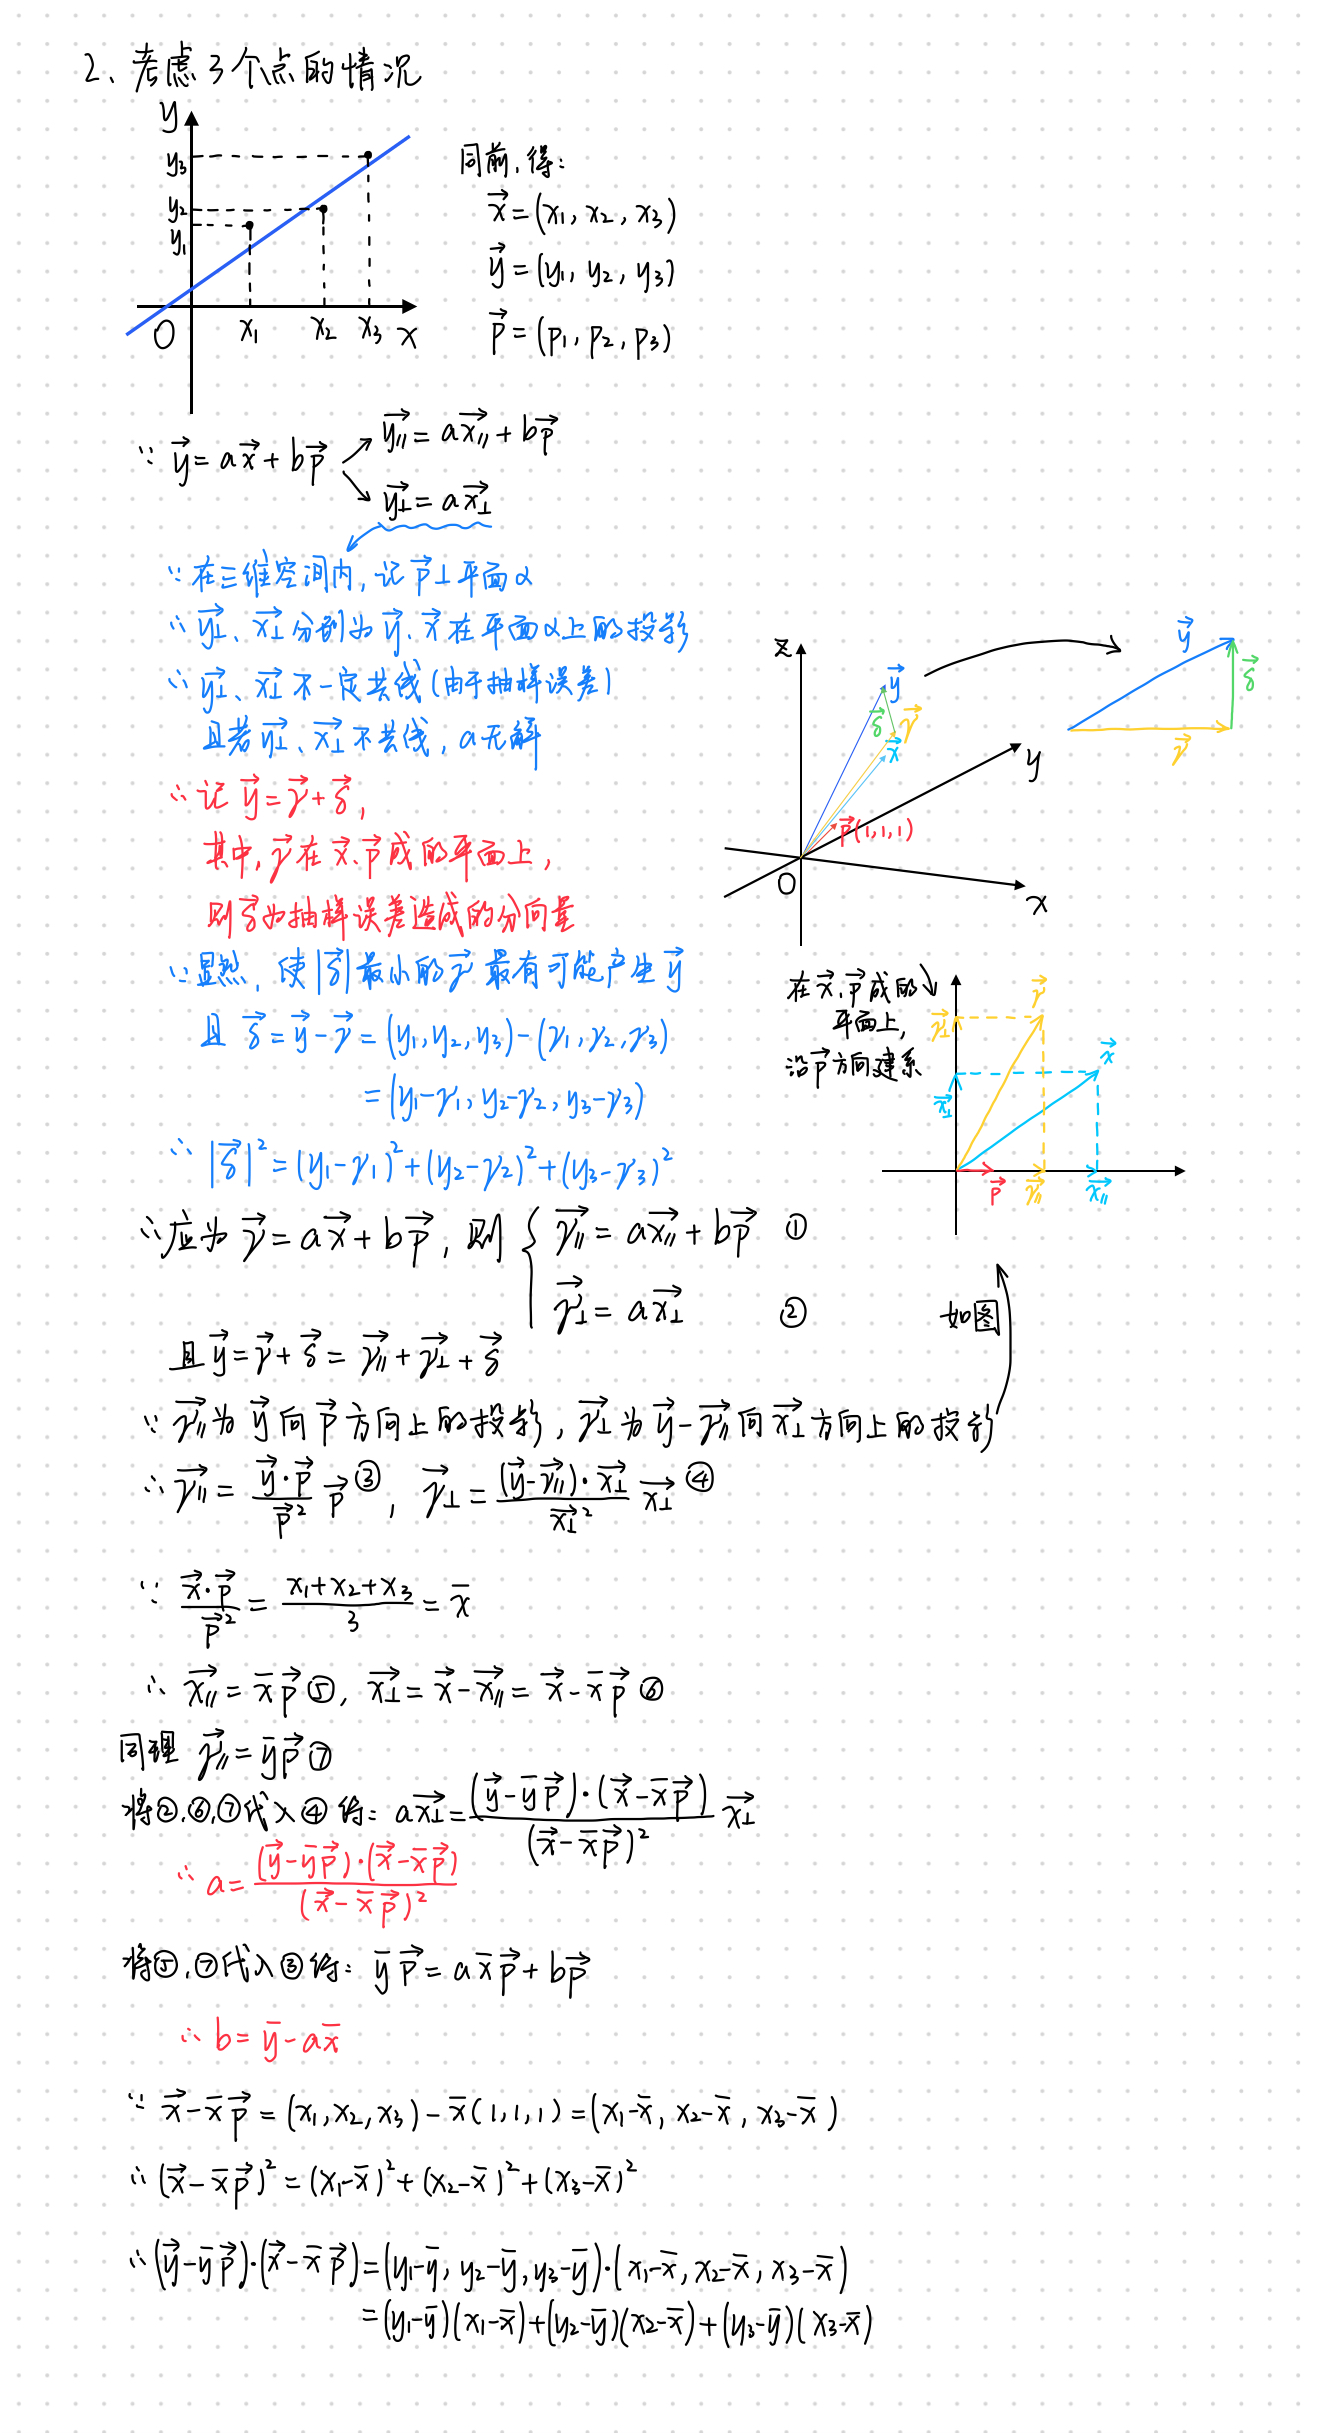 2、考虑3个点的情况
y
y₃
y₂
y₁
O
x₁
x₂
x₃
x
同前,得:
x⃗=(x₁, x₂, x₃)
y⃗=(y₁, y₂, y₃)
p⃗=(p₁, p₂, p₃)
∵ y⃗=ax⃗+bp⃗
y⃗∥=ax⃗∥+bp⃗
y⃗⊥=ax⃗⊥
∵在三维空间内,记p⃗⊥平面α
∴y⃗⊥、x⃗⊥分别为y⃗、x⃗在平面α上的投影
∵y⃗⊥、x⃗⊥不一定共线(由于抽样误差)
且若y⃗⊥、x⃗⊥不共线,a无解
∴记y⃗=γ⃗+δ⃗,
其中,γ⃗在x⃗、p⃗成的平面上,
则δ⃗为抽样误差造成的分向量
∵显然,使|δ⃗|最小的γ⃗最有可能产生y⃗
且 δ⃗=y⃗-γ⃗=(y₁,y₂,y₃)-(γ₁,γ₂,γ₃)
=(y₁-γ₁, y₂-γ₂, y₃-γ₃)
∴ |δ⃗|²=(y₁-γ₁)²+(y₂-γ₂)²+(y₃-γ₃)²
z
y⃗
δ⃗
γ⃗
x⃗
p⃗(1,1,1)
y
O
x
y⃗
δ⃗
γ⃗
在x⃗、p⃗成的
平面上,
沿p⃗方向建系
γ⃗
γ⃗⊥
x⃗
x⃗⊥
p⃗
γ⃗∥
x⃗∥
如图
∴应为γ⃗=ax⃗+bp⃗,则{γ⃗∥=ax⃗∥+bp⃗ ①
γ⃗⊥=ax⃗⊥ ②
且y⃗=γ⃗+δ⃗=γ⃗∥+γ⃗⊥+δ⃗
∵γ⃗∥为y⃗向p⃗方向上的投影,γ⃗⊥为y⃗-γ⃗∥向x⃗⊥方向上的投影
∴γ⃗∥=(y⃗·p⃗)/p⃗² p⃗ ③, γ⃗⊥=((y⃗-γ⃗∥)·x⃗⊥)/x⃗⊥² x⃗⊥ ④
∵ (x⃗·p⃗)/p⃗²=(x₁+x₂+x₃)/3=x̄
∴ x⃗∥=x̄p⃗ ⑤, x⃗⊥=x⃗-x⃗∥=x⃗-x̄p⃗ ⑥
同理 γ⃗∥=ȳp⃗ ⑦
将②,⑥,⑦代入④得: ax⃗⊥=((y⃗-ȳp⃗)·(x⃗-x̄p⃗))/(x⃗-x̄p⃗)² x⃗⊥
∴ a=((y⃗-ȳp⃗)·(x⃗-x̄p⃗))/(x⃗-x̄p⃗)²
将⑤,⑦代入③得: ȳp⃗=ax̄p⃗+bp⃗
∴ b=ȳ-ax̄
∵ x⃗-x̄p⃗=(x₁,x₂,x₃)-x̄(1,1,1)=(x₁-x̄, x₂-x̄, x₃-x̄)
∴ (x⃗-x̄p⃗)²=(x₁-x̄)²+(x₂-x̄)²+(x₃-x̄)²
∴(y⃗-ȳp⃗)·(x⃗-x̄p⃗)=(y₁-ȳ, y₂-ȳ, y₃-ȳ)·(x₁-x̄, x₂-x̄, x₃-x̄)
=(y₁-ȳ)(x₁-x̄)+(y₂-ȳ)(x₂-x̄)+(y₃-ȳ)(x₃-x̄)